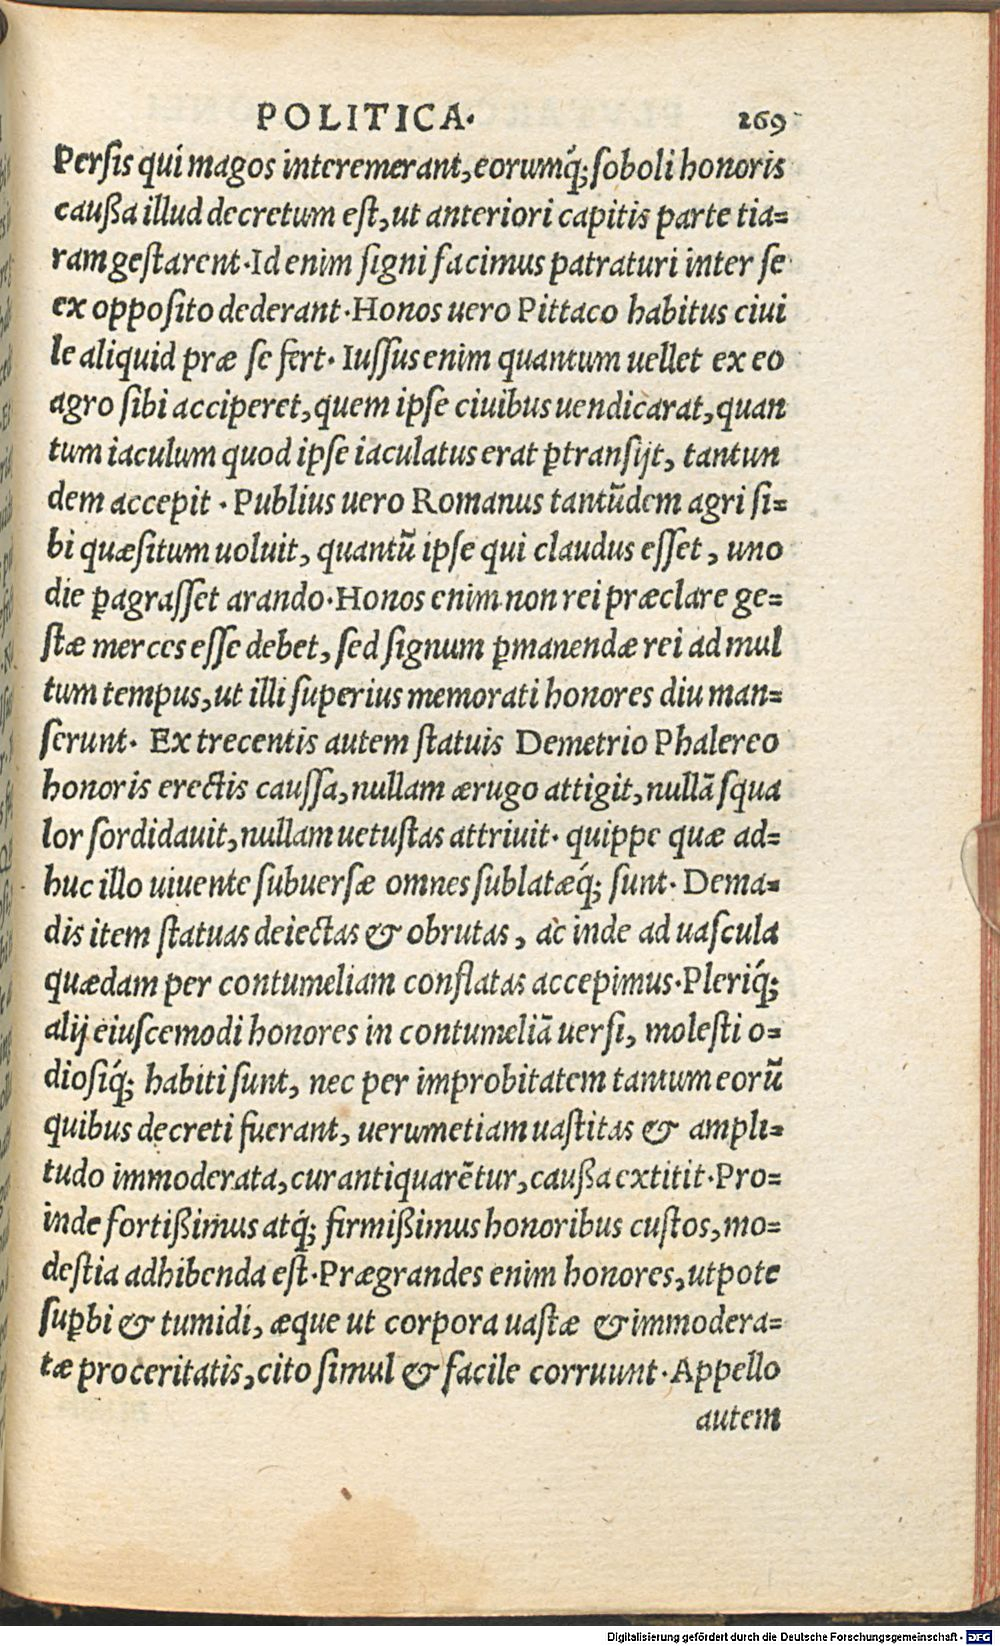 POLITICA. 269
Persis qui magos interemerant, eorumq́; soboli honoris
caußa illud decretum eſt, ut anteriori capitis parte tia=
ram geſtarent. Id enim ſigni facimus patraturi inter ſe
ex oppoſito dederant. Honos uero Pittaco habitus ciui
le aliquid præ ſe fert. Iuſſus enim quantum uellet ex eo
agro ſibi acciperet, quem ipſe ciuibus uendicarat, quan
tum iaculum quod ipſe iaculatus erat p̱tranſijt, tantun
dem accepit. Publius uero Romanus tantũdem agri ſi=
bi quæſitum uoluit, quantũ ipſe qui claudus eſſet, uno
die p̱agraſſet arando. Honos enim non rei præclare ge=
ſtæ merces eſſe debet, ſed ſignum p̱manendæ rei ad mul
tum tempus, ut illi ſuperius memorati honores diu man=
ſerunt. Ex trecentis autem ſtatuis Demetrio Phalereo
honoris erectis cauſſa, nullam ærugo attigit, nullã ſqua
lor ſordidauit, nullam uetuſtas attriuit. quippe quæ ad=
huc illo uiuente ſubuerſæ omnes ſublatæq́; ſunt. Dema=
dis item ſtatuas deiectas & obrutas, ac inde ad uaſcula
quædam per contumeliam conflatas accepimus. Pleriq́;
alij eiuſcemodi honores in contumeliã uerſi, moleſti o=
dioſiq́; habiti ſunt, nec per improbitatem tantum eorũ
quibus decreti fuerant, uerumetiam uaſtitas & ampli=
tudo immoderata, cur antiquarẽtur, caußa extitit. Pro=
inde fortißimus atq́; firmißimus honoribus cuſtos, mo=
deſtia adhibenda eſt. Prægrandes enim honores, utpote
ſup̱bi & tumidi, æque ut corpora uaſtæ & immodera=
tæ proceritatis, cito ſimul & facile corruunt. Appello
autem
Digitalisierung gefördert durch die Deutsche Forschungsgemeinschaft - DFG